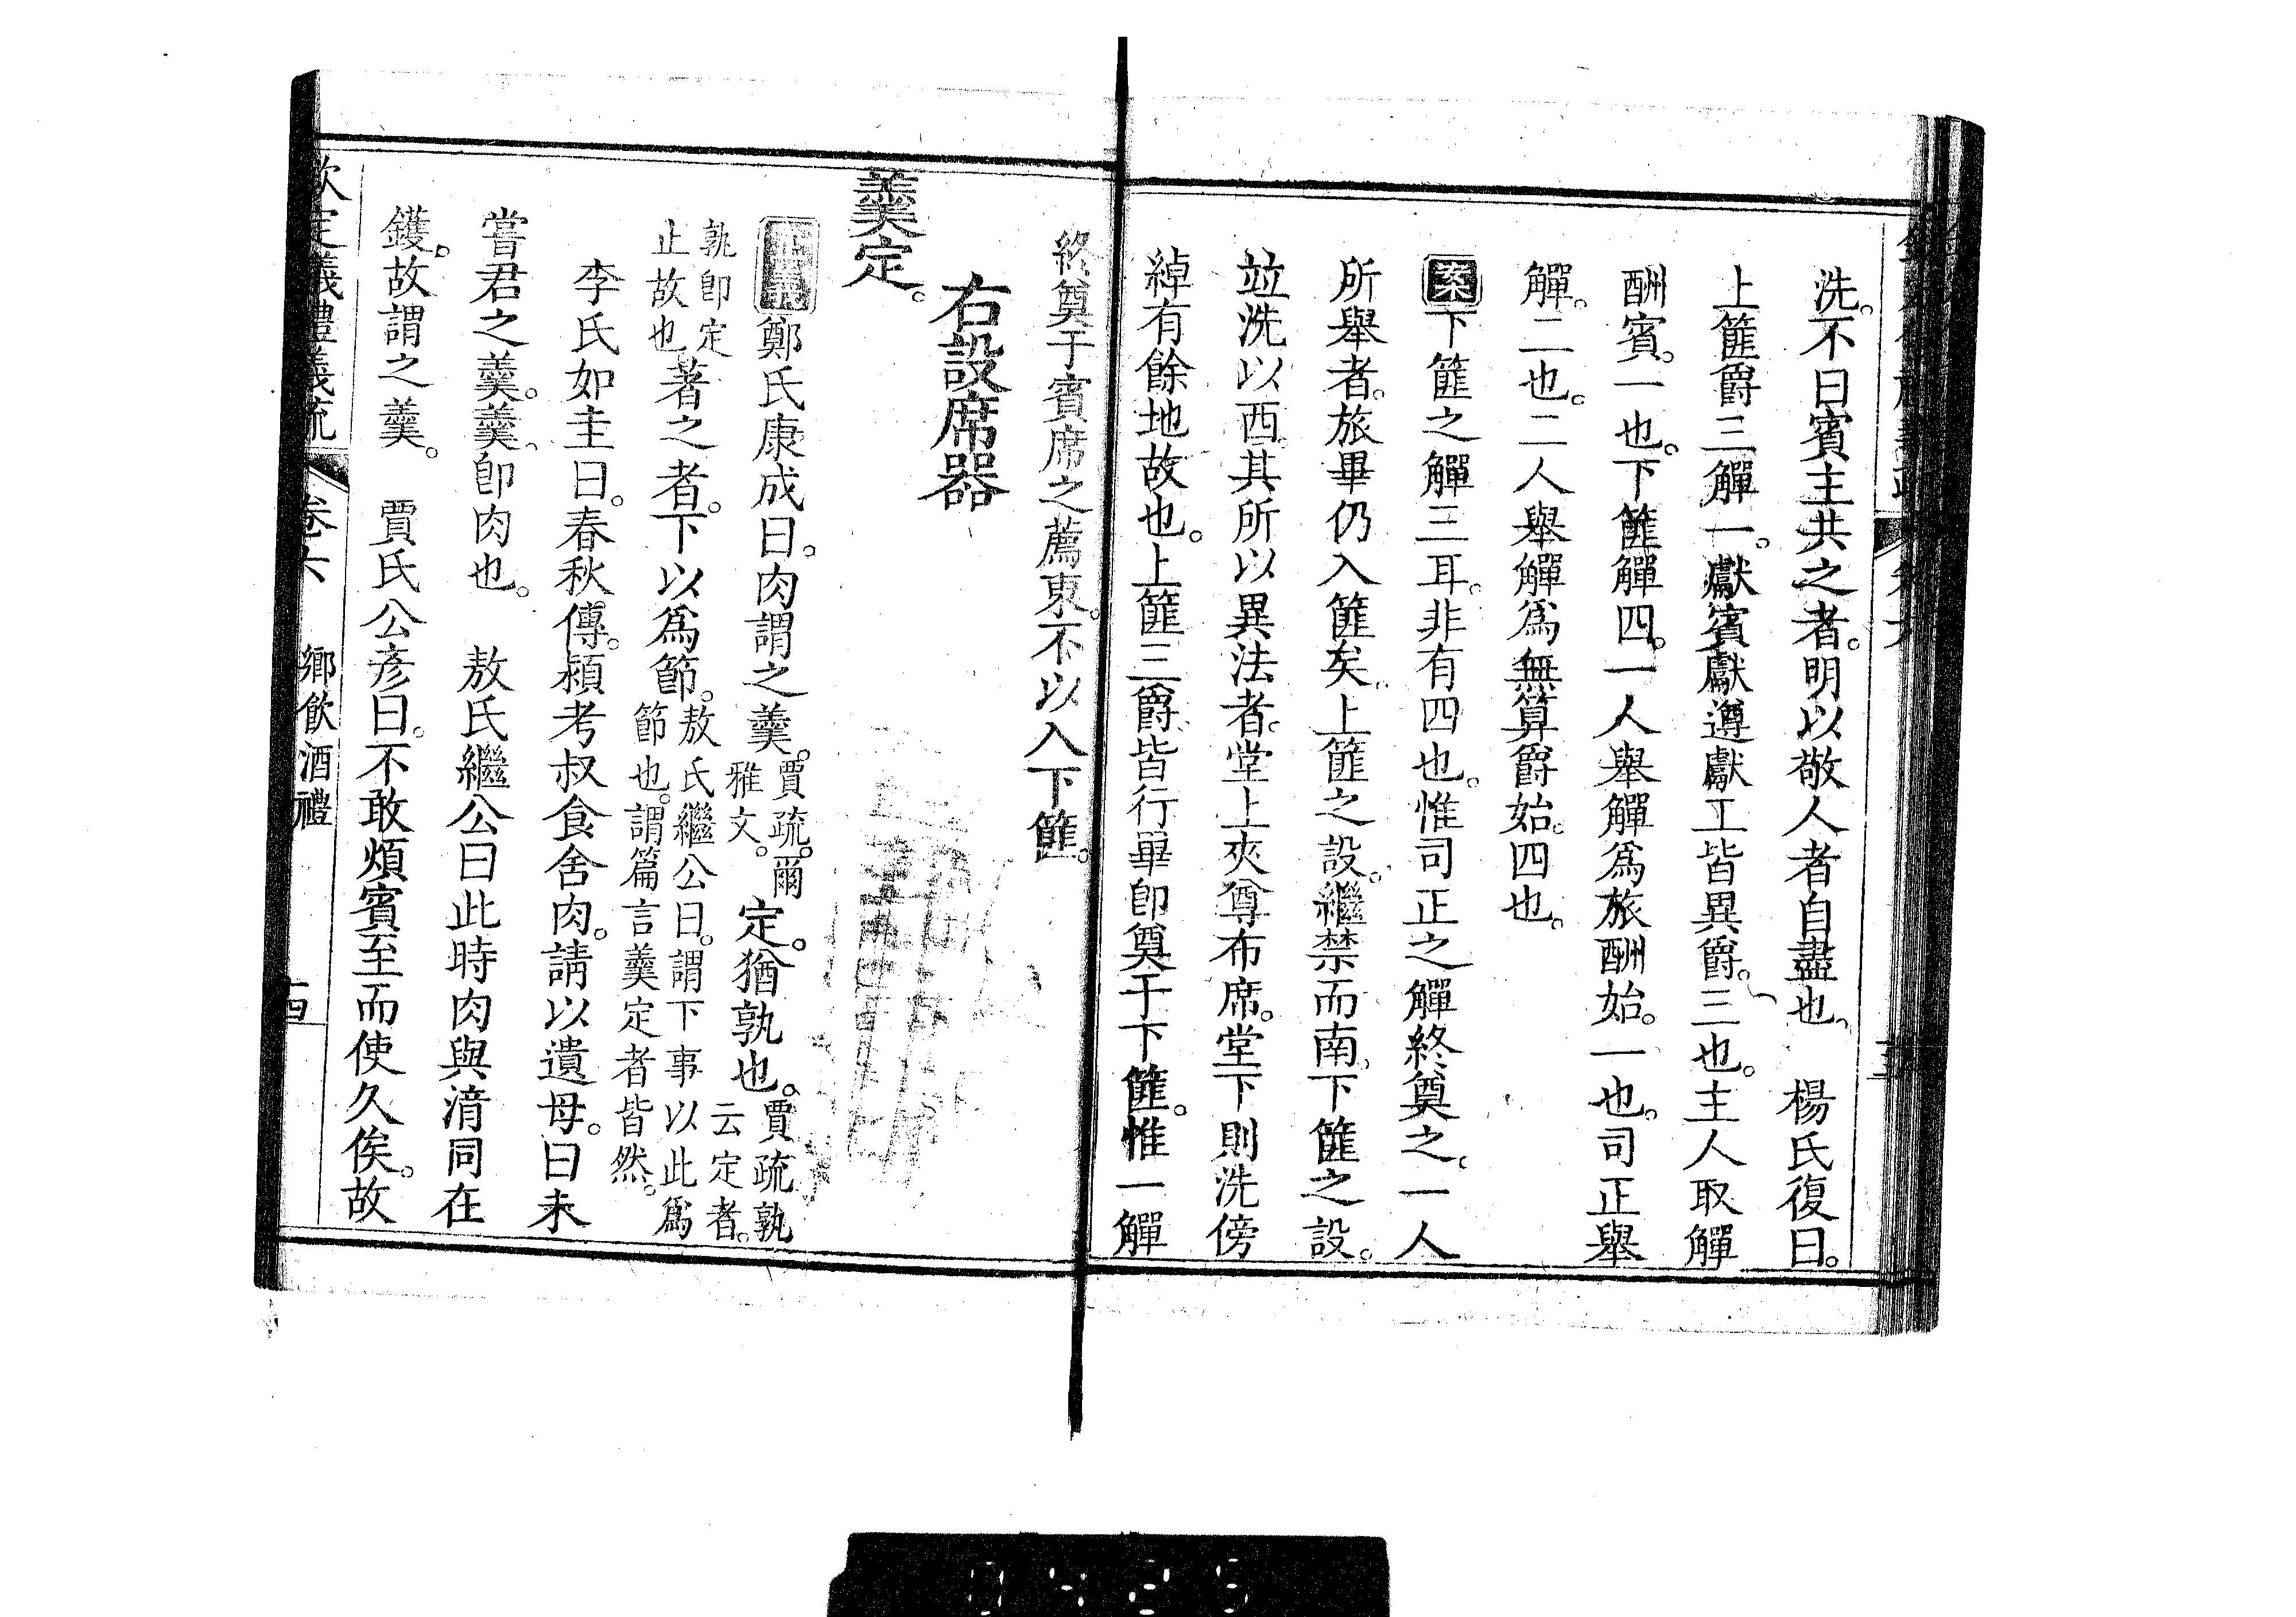 洗。不曰賓主共之者。明以敬人者自盡也。　楊氏復曰。
上篚爵三觶一。獻賓獻遵獻工皆異爵。三也。主人取觶
酬賓。一也。下篚觶四。一人舉觶爲旅酬始。一也。司正舉
觶。二也。二人舉觶爲無算爵始。四也。
案下篚之觶三耳。非有四也。惟司正之觶終奠之。一人
所舉者。旅畢仍入篚矣。上篚之設。繼禁而南。下篚之設。
竝洗以西。其所以異法者。堂上夾尊布席。堂下則洗傍
綽有餘地故也。上篚三爵皆行畢卽奠于下篚。惟一觶
終奠于賓席之薦東。不以入下篚。
右設席器
羹定。
正義鄭氏康成曰。肉謂之羹。賈疏。爾雅文。定。猶孰也。賈疏孰云定者。
孰卽定止故也著之者。下以爲節。敖氏繼公曰。謂下事以此爲節也。謂篇言羹定者皆然。
李氏如圭曰。春秋傳。潁考叔食舍肉。請以遺母。曰未
嘗君之羹。羹、卽肉也。　敖氏繼公曰此時肉與湆同在
鑊。故謂之羹。　賈氏公彥曰。不敢煩賓至而使久俟。故
欽定義禮義疏　卷六　鄉飲酒禮　十四